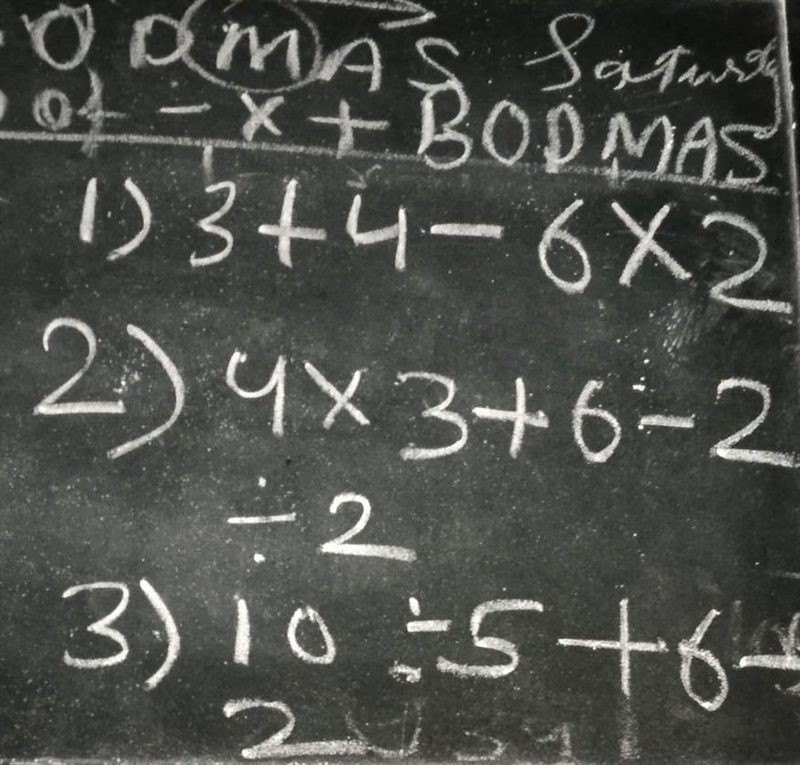 ODMAS Saturd
of - × + BODMAS
1) 3+4-6×2
2) 4×3+6-2
÷2
3) 10÷5+6
2